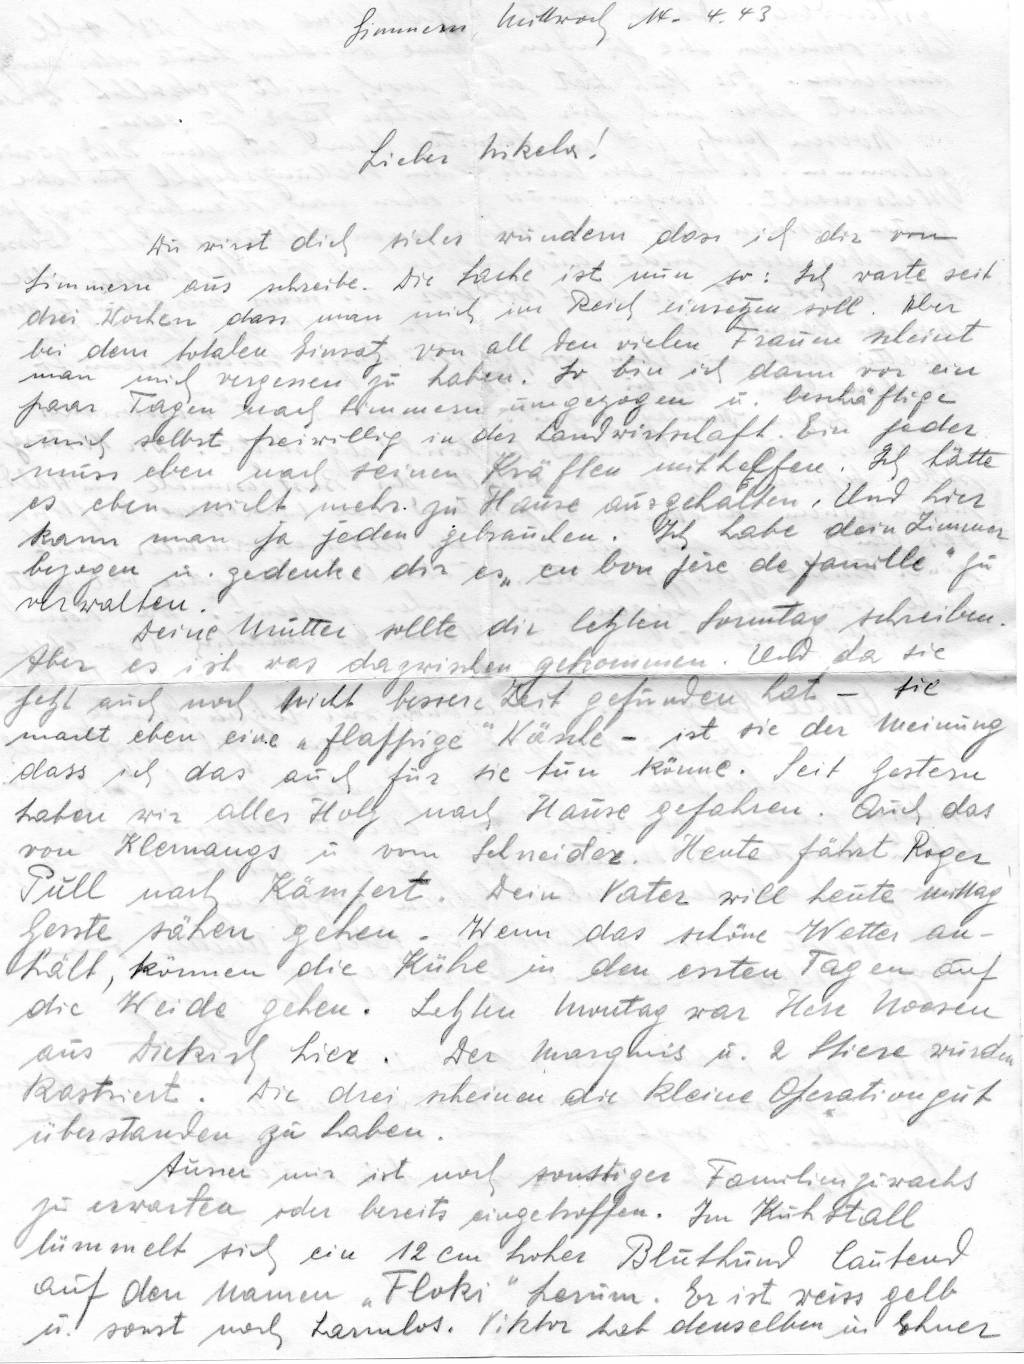 Simmern, Mittwoch 14. 4. 43
Lieber Nikela!
Du wirst dich sicher wundern dass ich dir von
Simmern aus schreibe. Die Sache ist nun so: Ich warte seit
drei Wochen dass man mich im Reich einsetzen soll. Aber
bei dem totalen Einsatz von all den vielen Frauen scheint
man mich vergessen zu haben. So bin ich dann vor ein
paar Tagen nach Simmern umgezogen u. beschäftige
mich selbst freiwillig in der Landwirtschaft. Ein jeder
muss eben nach seinen Kräften mithelfen. Ich hätte
es eben nicht mehr zu Hause ausgehalten. Und hier
kann man ja jeden gebrauchen. Ich habe dein Zimmer
bezogen u. gedenke dir es „en bon père de famille" zu
verwalten.
Deine Mutter sollte dir letzten Sonntag schreiben.
Aber es ist was dazwischen gekommen. Und da sie
jetzt auch noch nicht bessere Zeit gefunden hat – sie
macht eben eine „flappige" Wäsche – ist sie der Meinung
dass ich das auch für sie tun könne. Seit Gestern
haben wir alles Holz nach Hause gefahren. Auch das
von Klemangs u vom Schneider. Heute fährt Roger
Pull nach Kämpert. Dein Vater will heute mittag
Gerste sähen gehen. Wenn das schöne Wetter an-
hält, können die Kühe in den ersten Tagen auf
die Weide gehen. Letzten Montag war Herr Noesen
aus Diekirch hier. Der Marquis u. 2 Stiere wurden
kastriert. Die drei scheinen die kleine Operation gut
überstanden zu haben.
Ausser mir ist noch sonstiger Familienzuwachs
zu erwarten oder bereits eingetroffen. Im Kuhstall
lümmelt sich ein 12 cm hoher Bluthund lautend
auf den Namen „Floki" herum. Er ist weiss gelb
u. sonst noch harmlos. Viktor hat denselben in Ehner